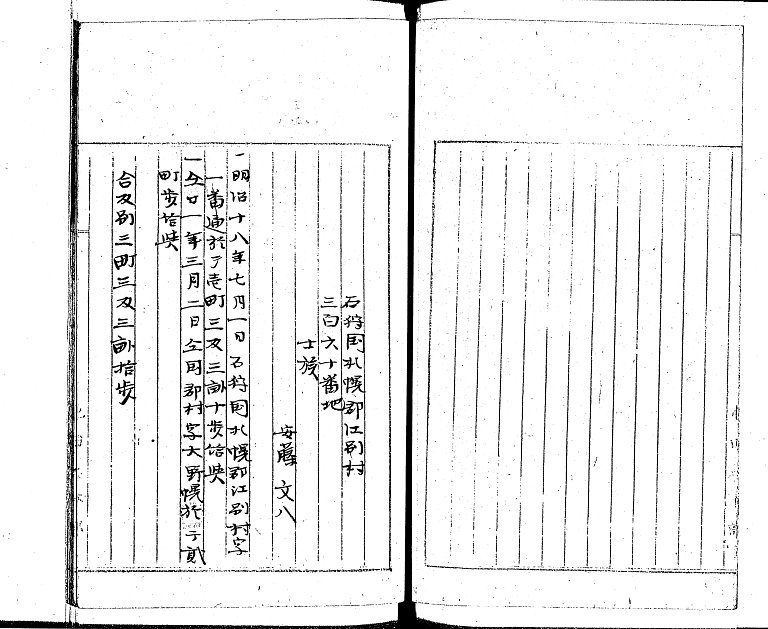 石狩国札幌郡江別村
三百六十番地
士族
安藤文八
一明治十八年七月一日石狩国札幌郡江別村字
一番通於テ壱町三反三畝十歩給与
一仝廿一年三月二日仝国郡村字大野幌於テ貳
町歩給与
合反別三町三反三畝拾歩